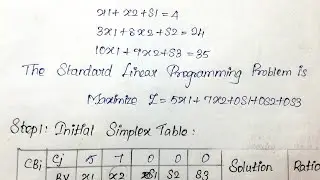 x1 + x2 + S1 = 4
3x1 + 8x2 + S2 = 24
10x1 + 9x2 + S3 = 35
The Standard Linear Programming Problem is
Maximize Z = 5x1 + 7x2 + 0S1 + 0S2 + 0S3
Step1: Initial Simplex Table:
CBi Cj 5 7 0 0 0 Solution Ratio
BV x1 x2 S1 S2 S3